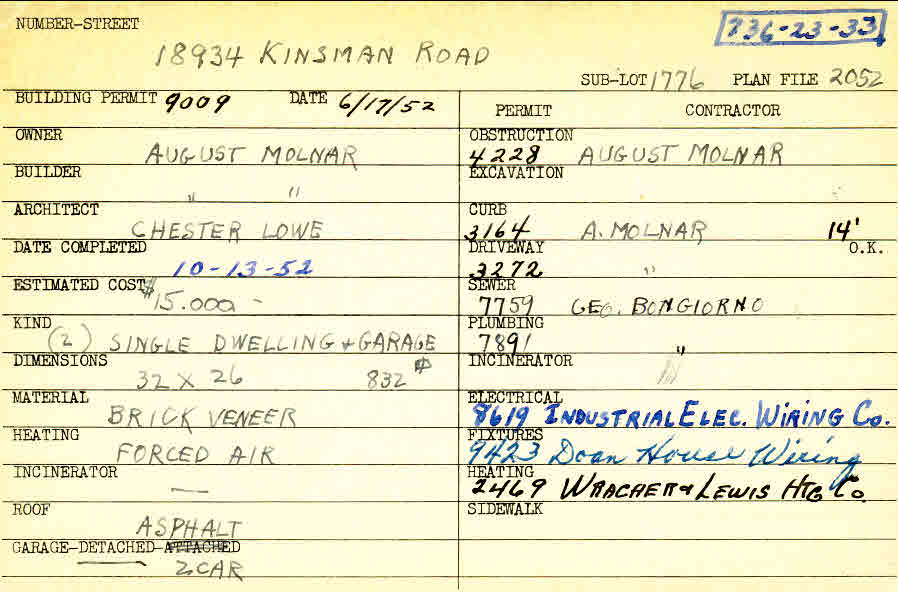 NUMBER-STREET
736-23-33
18934 KINSMAN ROAD
SUB-LOT 1776 PLAN FILE 2052
BUILDING PERMIT 9009 DATE 6/17/52
PERMIT CONTRACTOR
OWNER
AUGUST MOLNAR
OBSTRUCTION
4228 AUGUST MOLNAR
BUILDER
" "
EXCAVATION
ARCHITECT
CHESTER LOWE
CURB
3164 A. MOLNAR 14'
DATE COMPLETED
10-13-52
DRIVEWAY O.K.
3272 "
ESTIMATED COST $15.000 -
SEWER
7759 GEO. BONGIORNO
KIND
(2) SINGLE DWELLING + GARAGE
PLUMBING
7891 "
DIMENSIONS
32 X 26 832 #
INCINERATOR
MATERIAL
BRICK VENEER
ELECTRICAL
8619 INDUSTRIAL ELEC. WIRING CO.
HEATING
FORCED AIR
FIXTURES
9423 Doan House Wiring
INCINERATOR
—
HEATING
2469 & LEWIS HTG CO.
ROOF
ASPHALT
SIDEWALK
GARAGE-DETACHED-ATTACHED
2 CAR